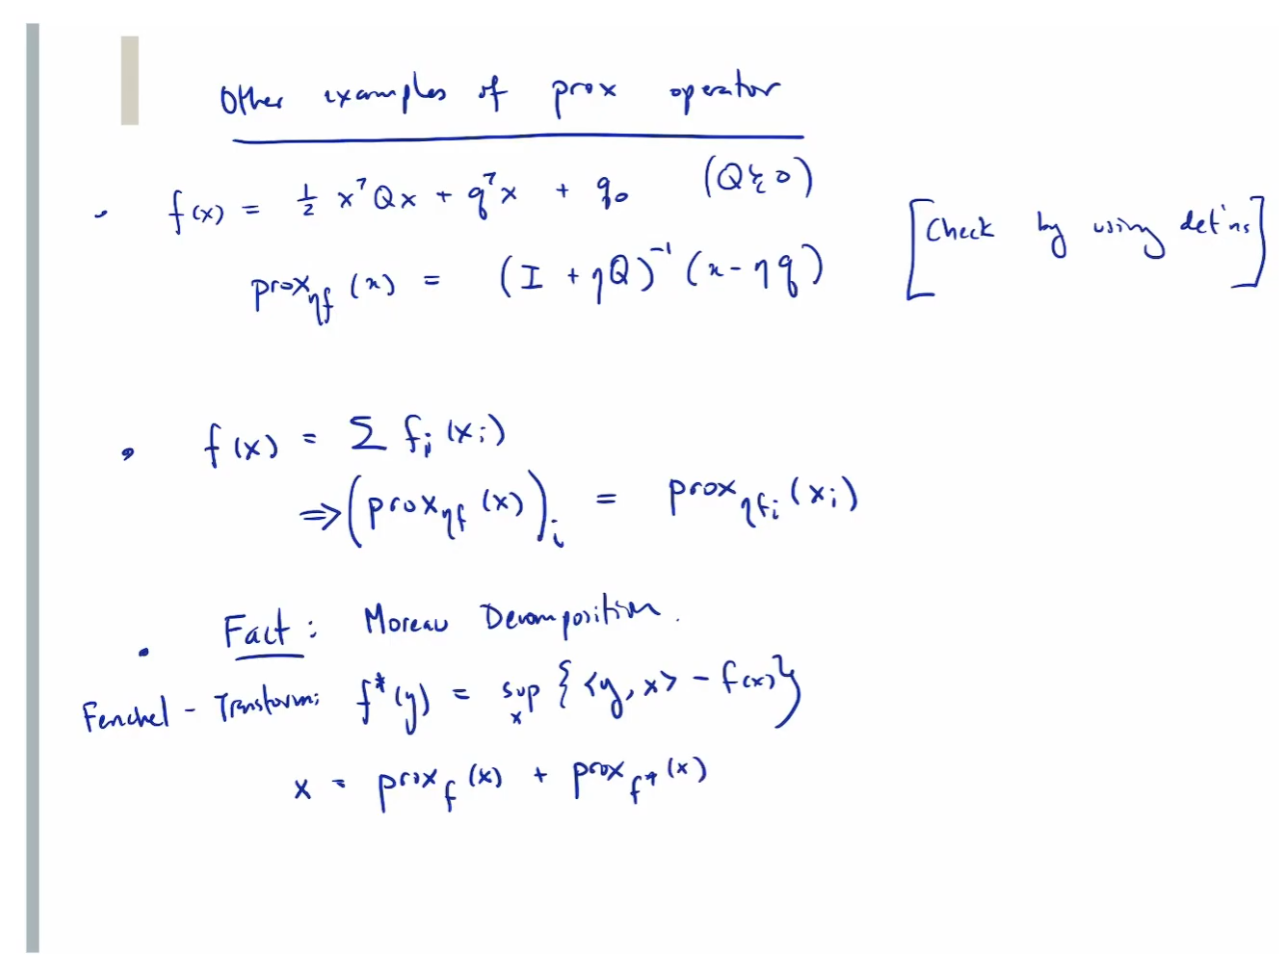 Other examples of prox operator
• f(x) = ½ xᵀQx + qᵀx + q₀ (Q ⪰ 0)
prox_ηf (x) = (I + ηQ)⁻¹ (x - ηq) [Check by using def'ns]
• f(x) = Σ fᵢ(xᵢ)
⇒ (prox_ηf (x))ᵢ = prox_ηfᵢ (xᵢ)
• Fact: Moreau Decomposition.
Fenchel - Transform: f*(y) = sup_x { <y, x> - f(x) }
x = prox_f (x) + prox_f* (x)